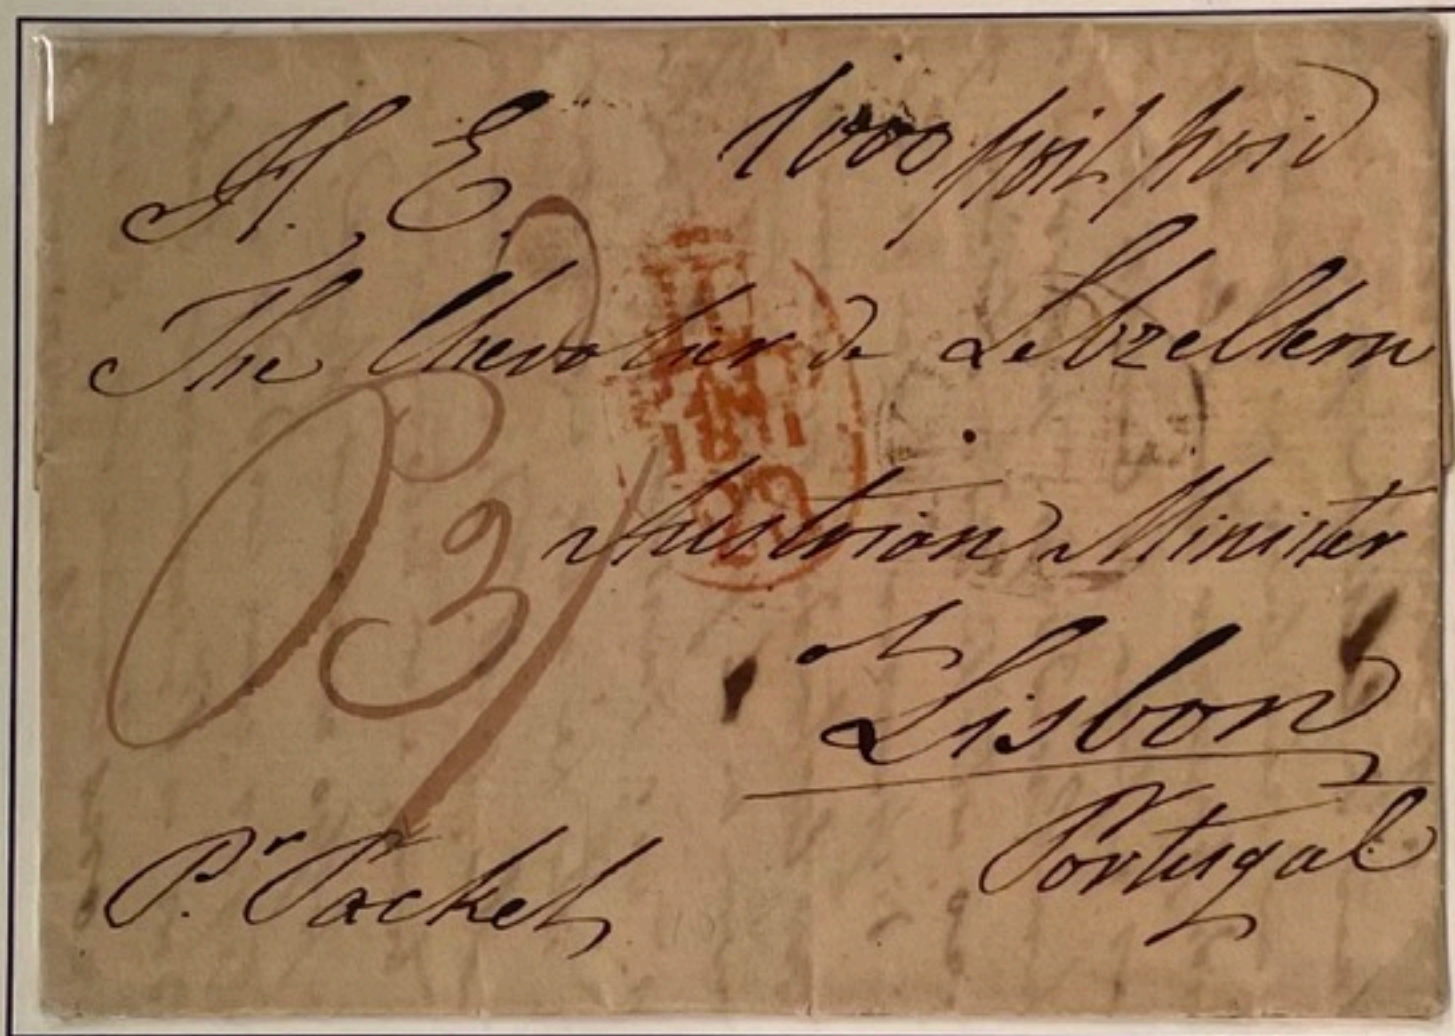 H. E. post paid
The Chevalier de Lebzeltern
Austrian Minister
at
Lisbon
Portugal
Pr. Packet
3/